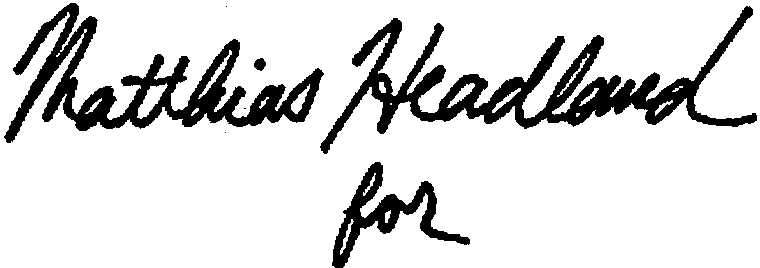 Matthias Headland
for